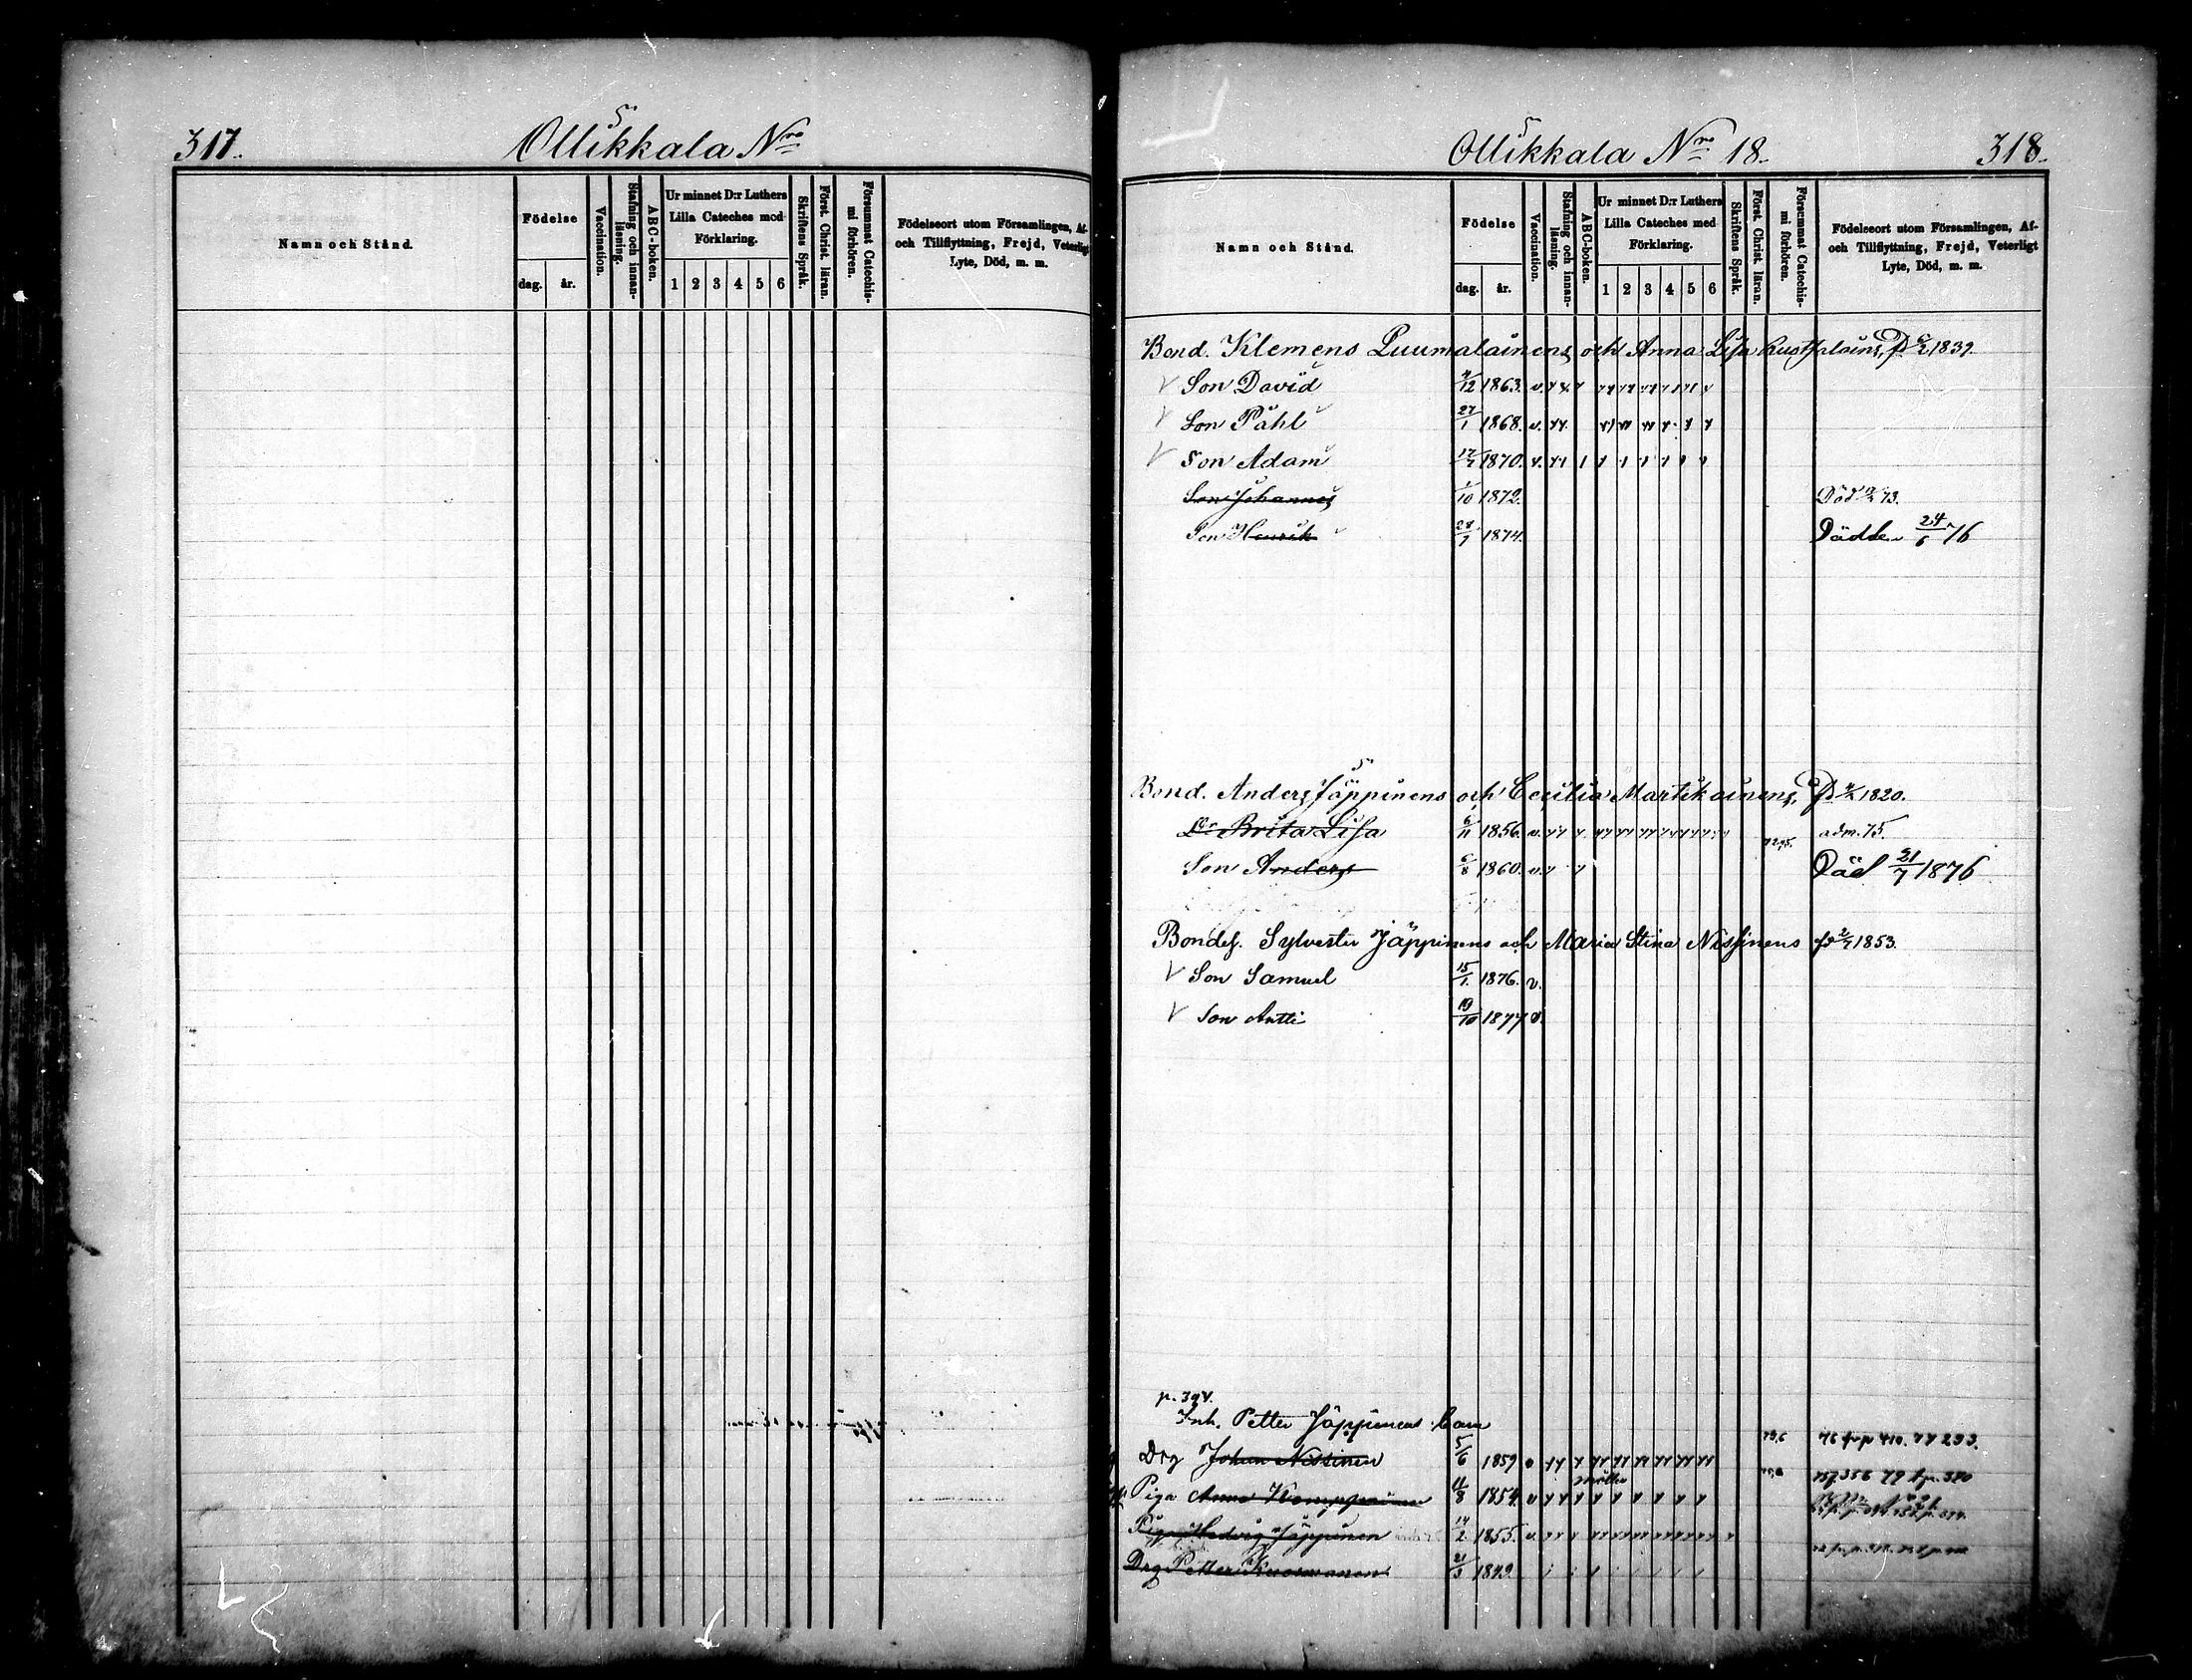 317.
Ollikkala Nro
Namn och Stånd.
Födelse
dag.
år.
Vaccination.
Stafning och innanläsning.
ABC-boken.
Ur minnet D:r Luthers
Lilla Cateches med
Förklaring.
1 2 3 4 5 6
Skriftens Språk.
Först. Christ. läran.
Försummat Catechismi förhören.
Födelseort utom Församlingen, Af-
och Tillflyttning, Frejd, Veterligt
Lyte, Död, m. m.
Ollikkala Nro 18.
318.
Namn och Stånd.
Födelse
dag.
år.
Vaccination.
Stafning och innanläsning.
ABC-boken.
Ur minnet D:r Luthers
Lilla Cateches med
Förklaring.
1 2 3 4 5 6
Skriftens Språk.
Först. Christ. läran.
Försummat Catechismi förhören.
Födelseort utom Församlingen, Af-
och Tillflyttning, Frejd, Veterligt
Lyte, Död, m. m.
Bond. Klemens Luumalainens och Anna Lisa 1839.
Son David 12 1863. v.
Son Påhl 27/1 1868. v.
Son Adam 17/7 1870. v.
Son Johannes 1/10 1872. Död 73.
Son Henrik 28/7 1874. 24/6 76
Bond. Anders Jäppinens och Cecilia Martikainens, 1820.
Dr Brita Lisa 6/11 1856. v. adm. 75.
Son Anders 6/8 1860. v. Död 21/7 1876
Bondes. Sylvester Jäppinens och Maria Stina Nissinens 1853.
Son Samuel 15/1 1876. v.
Son Antti 19/10 1877 v.
Inh. Petter Jäppinens barn
Drg Johan Nissinen 5/6 1859 v
Piga Anna 11/8 1854. v
Piga Hedvig Jäppinen 14/2 1855. v.
Drg Petter 21/3 1849.